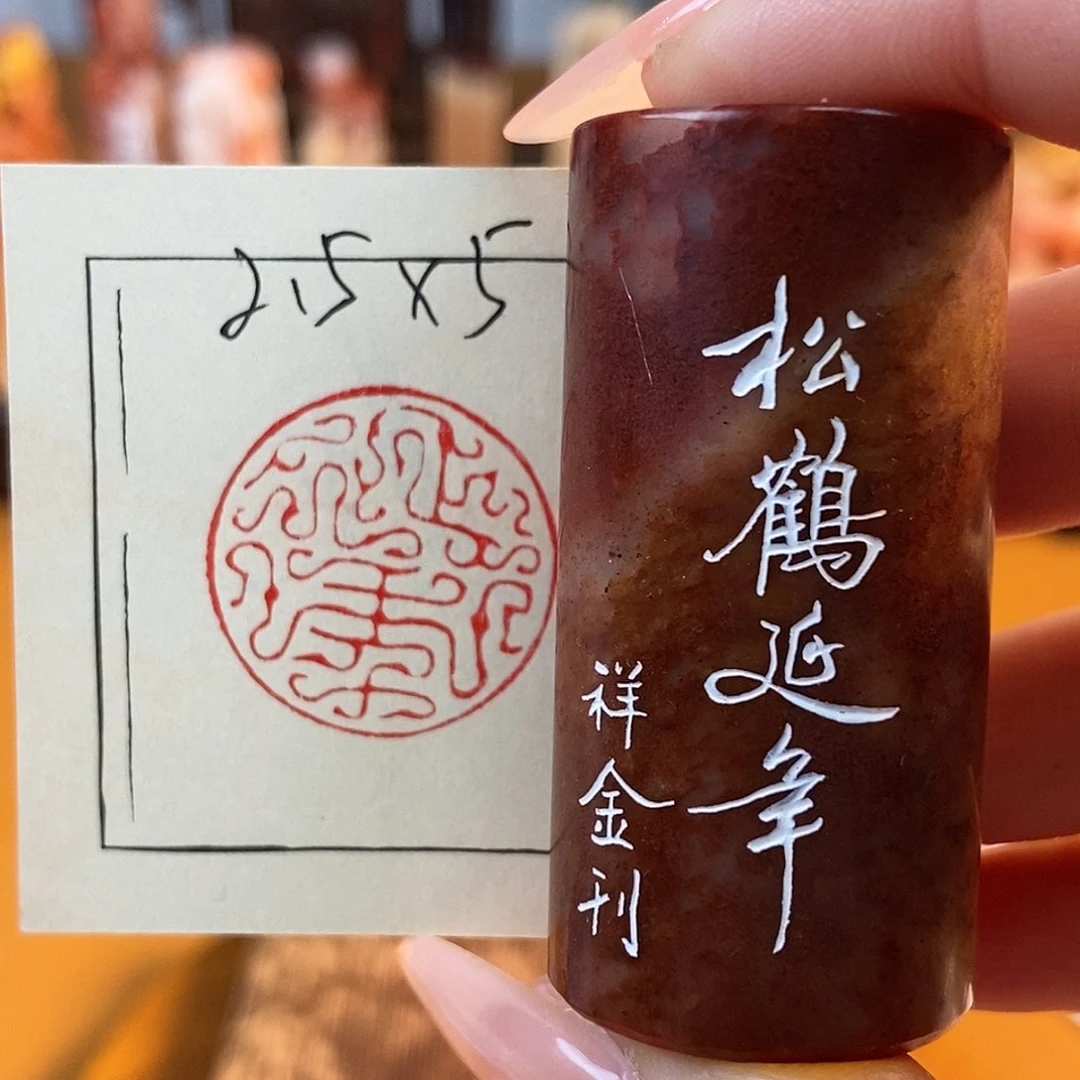 2.5×5
松鶴延年
祥金刊